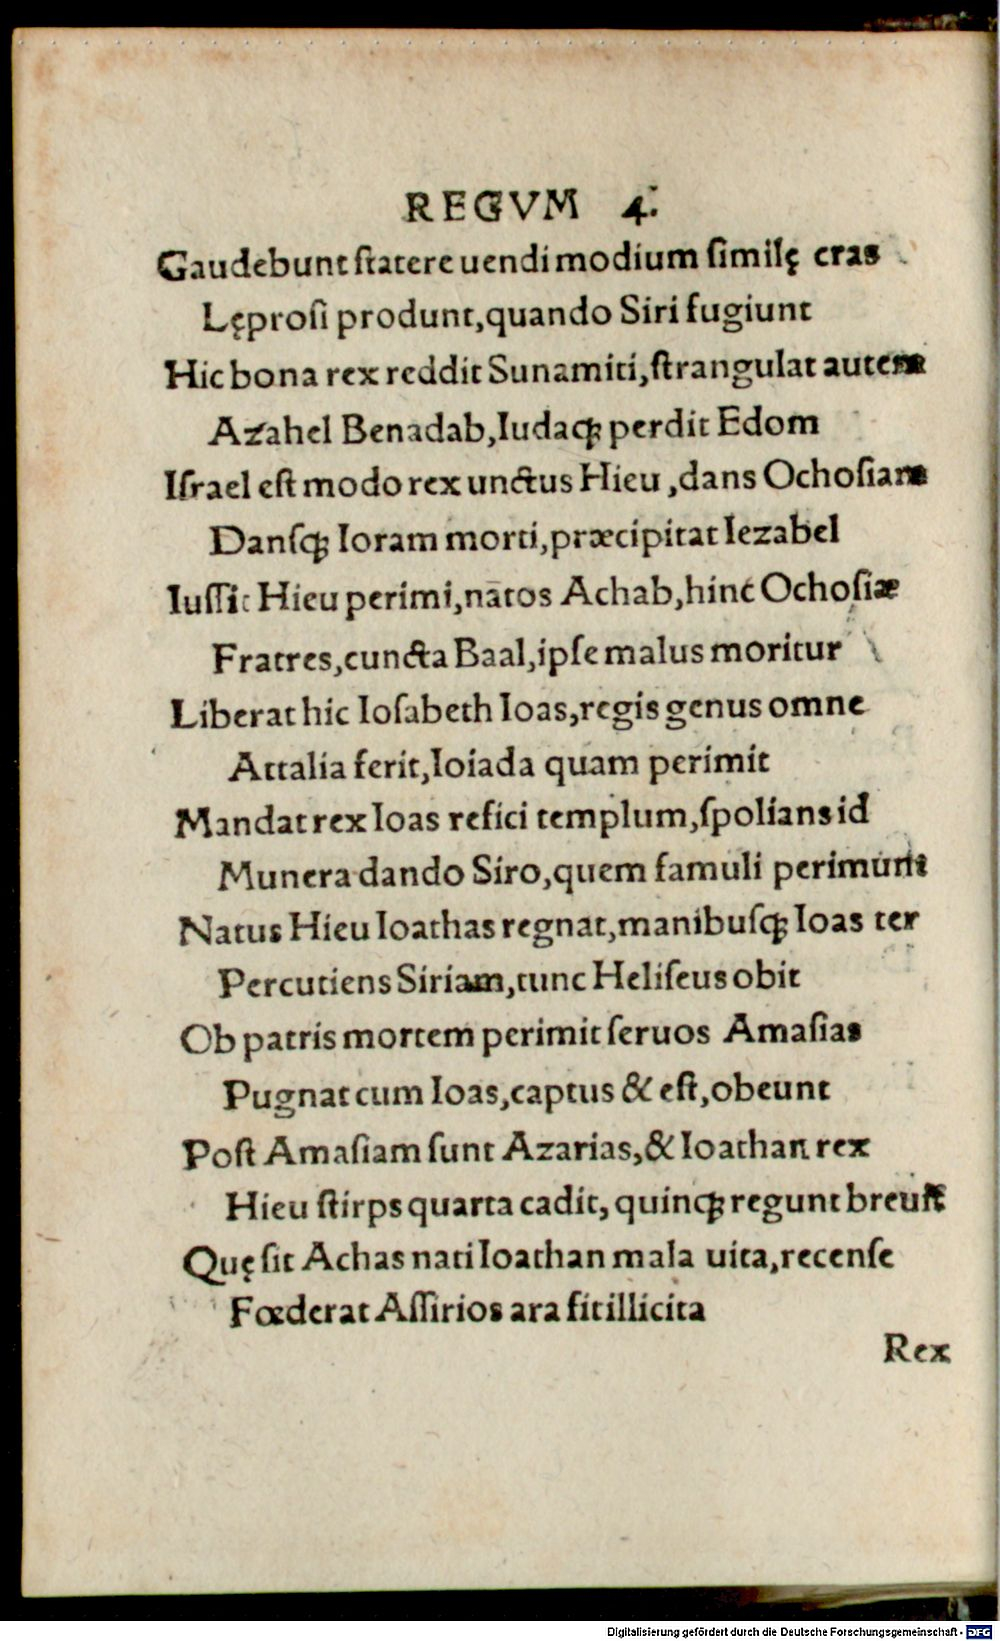 REGVM 4.
Gaudebunt statere uendi modium similę cras
Lęprosi produnt,quando Siri fugiunt
Hic bona rex reddit Sunamiti,strangulat autem
Azahel Benadab,Iudaqꝫ perdit Edom
Israel est modo rex unctus Hieu ,dans Ochosiam
Dansqꝫ Ioram morti,præcipitat Iezabel
Iussit Hieu perimi,natos Achab,hinc Ochosiæ
Fratres,cuncta Baal,ipse malus moritur
Liberat hic Iosabeth Ioas,regis genus omne
Attalia ferit,Ioiada quam perimit
Mandat rex Ioas refici templum,spolians id
Munera dando Siro,quem famuli perimunt
Natus Hieu Ioathas regnat,manibusqꝫ Ioas ter
Percutiens Siriam,tunc Heliseus obit
Ob patris mortem perimit seruos Amasias
Pugnat cum Ioas,captus & est,obeunt
Post Amasiam sunt Azarias,& Ioathan rex
Hieu stirps quarta cadit, quinqꝫ regunt breuist
Quę sit Achas nati Ioathan mala uita,recense
Fœderat Assirios ara fit illicita
Rex
Digitalisierung gefördert durch die Deutsche Forschungsgemeinschaft - DFG